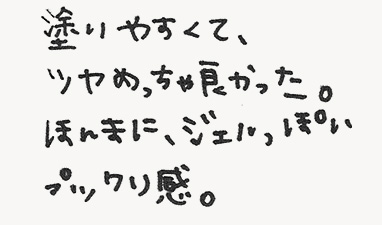 塗りやすくて、
ツヤめっちゃ良かった。
ほんまに、ジェルっぽい
プックリ感。